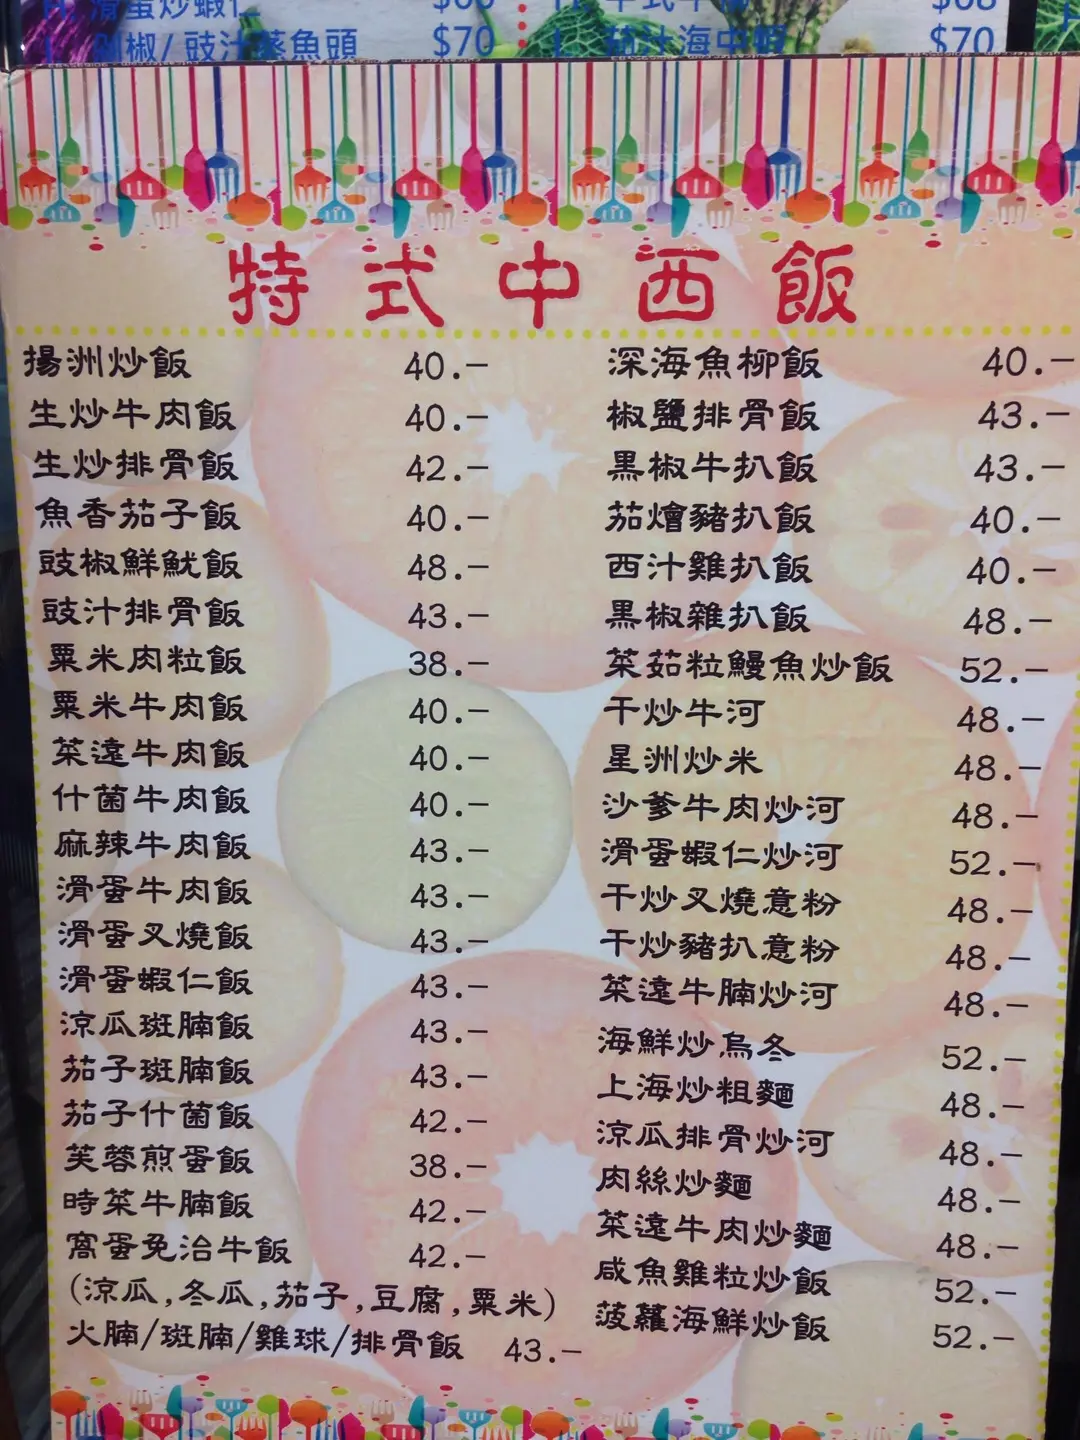 滑蛋炒蝦仁 $60
剁椒/豉汁蒸魚頭 $70
茄汁海中蝦 $70
特式中西飯
揚洲炒飯 40.-
生炒牛肉飯 40.-
生炒排骨飯 42.-
魚香茄子飯 40.-
豉椒鮮魷飯 48.-
豉汁排骨飯 43.-
粟米肉粒飯 38.-
粟米牛肉飯 40.-
菜遠牛肉飯 40.-
什菌牛肉飯 40.-
麻辣牛肉飯 43.-
滑蛋牛肉飯 43.-
滑蛋叉燒飯 43.-
滑蛋蝦仁飯 43.-
涼瓜斑腩飯 43.-
茄子斑腩飯 43.-
茄子什菌飯 42.-
芙蓉煎蛋飯 38.-
時菜牛腩飯 42.-
窩蛋免治牛飯 42.-
(涼瓜,冬瓜,茄子,豆腐,粟米)
火腩/斑腩/雞球/排骨飯 43.-
深海魚柳飯 40.-
椒鹽排骨飯 43.-
黑椒牛扒飯 43.-
茄燴豬扒飯 40.-
西汁雞扒飯 40.-
黑椒雜扒飯 48.-
菜茹粒鰻魚炒飯 52.-
干炒牛河 48.-
星洲炒米 48.-
沙爹牛肉炒河 48.-
滑蛋蝦仁炒河 52.-
干炒叉燒意粉 48.-
干炒豬扒意粉 48.-
菜遠牛腩炒河 48.-
海鮮炒烏冬 52.-
上海炒粗麵 48.-
涼瓜排骨炒河 48.-
肉絲炒麵 48.-
菜遠牛肉炒麵 48.-
咸魚雞粒炒飯 52.-
菠蘿海鮮炒飯 52.-